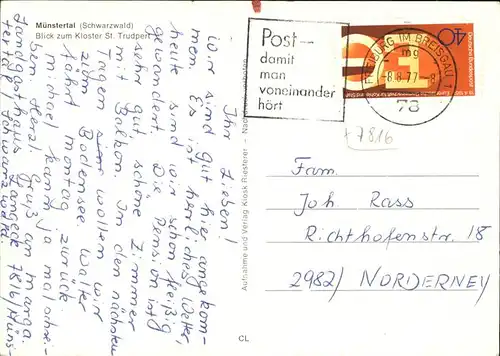 Münstertal (Schwarzwald)
Blick zum Kloster St. Trudpert
Ihr Lieben!
Wir sind gut hier angekom-
men. Es ist herrliches Wetter,
heute sind wir schon fleißig
gewandert. Die Pension ist
sehr gut schöne Zimmer
mit Balkon. In den nächsten
Tagen wollen wir
zum Bodensee. Walter
fährt montag zurück.
michael kann ja mal schrei-
ben. Herzl. Gruß an marga.
Landgasthaus Langeck 7816 Müns-
tertal / Schwarzwald
Aufnahme und Verlag Kiosk Riesterer
CL
Post –
damit
man
voneinander
hört
FREIBURG IM BREISGAU
mg
-8.8.77-8
78
Deutsche Bundespost
40
+7816
Fam.
Joh. Rass
Richthofenstr. 18
2982/ NORDERNEY